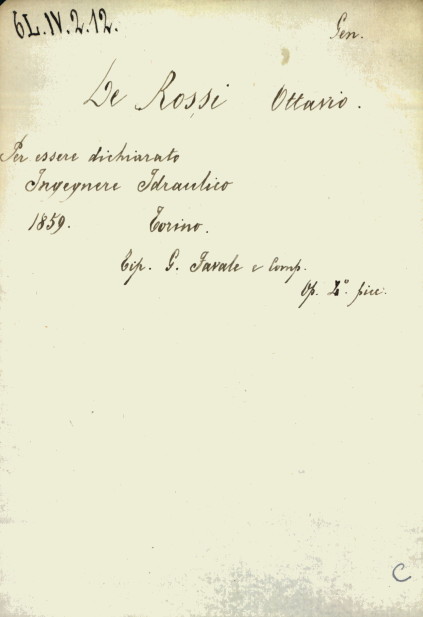 6L.IV.2.12. Gen.
De Rossi Ottavio.
Per essere dichiarato
Ingegnere Idraulico
1859. Torino.
Tip. G. Favale e Comp.
Op. 4°. picc.
C